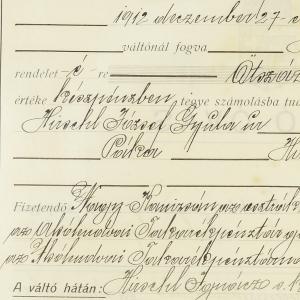 1912 deczember 27-
váltónál fogva
rendelet é re Ötszáz
értéke készpénzben tegye számolásba
Hirschl József Gyula úr
Fizetendő Nagy Kanizsán az
az Alsólendvai Takarékpénztár
az Alsólendvai Takarékpénztár
A váltó hátán: Hirschl Ignácz s. k.